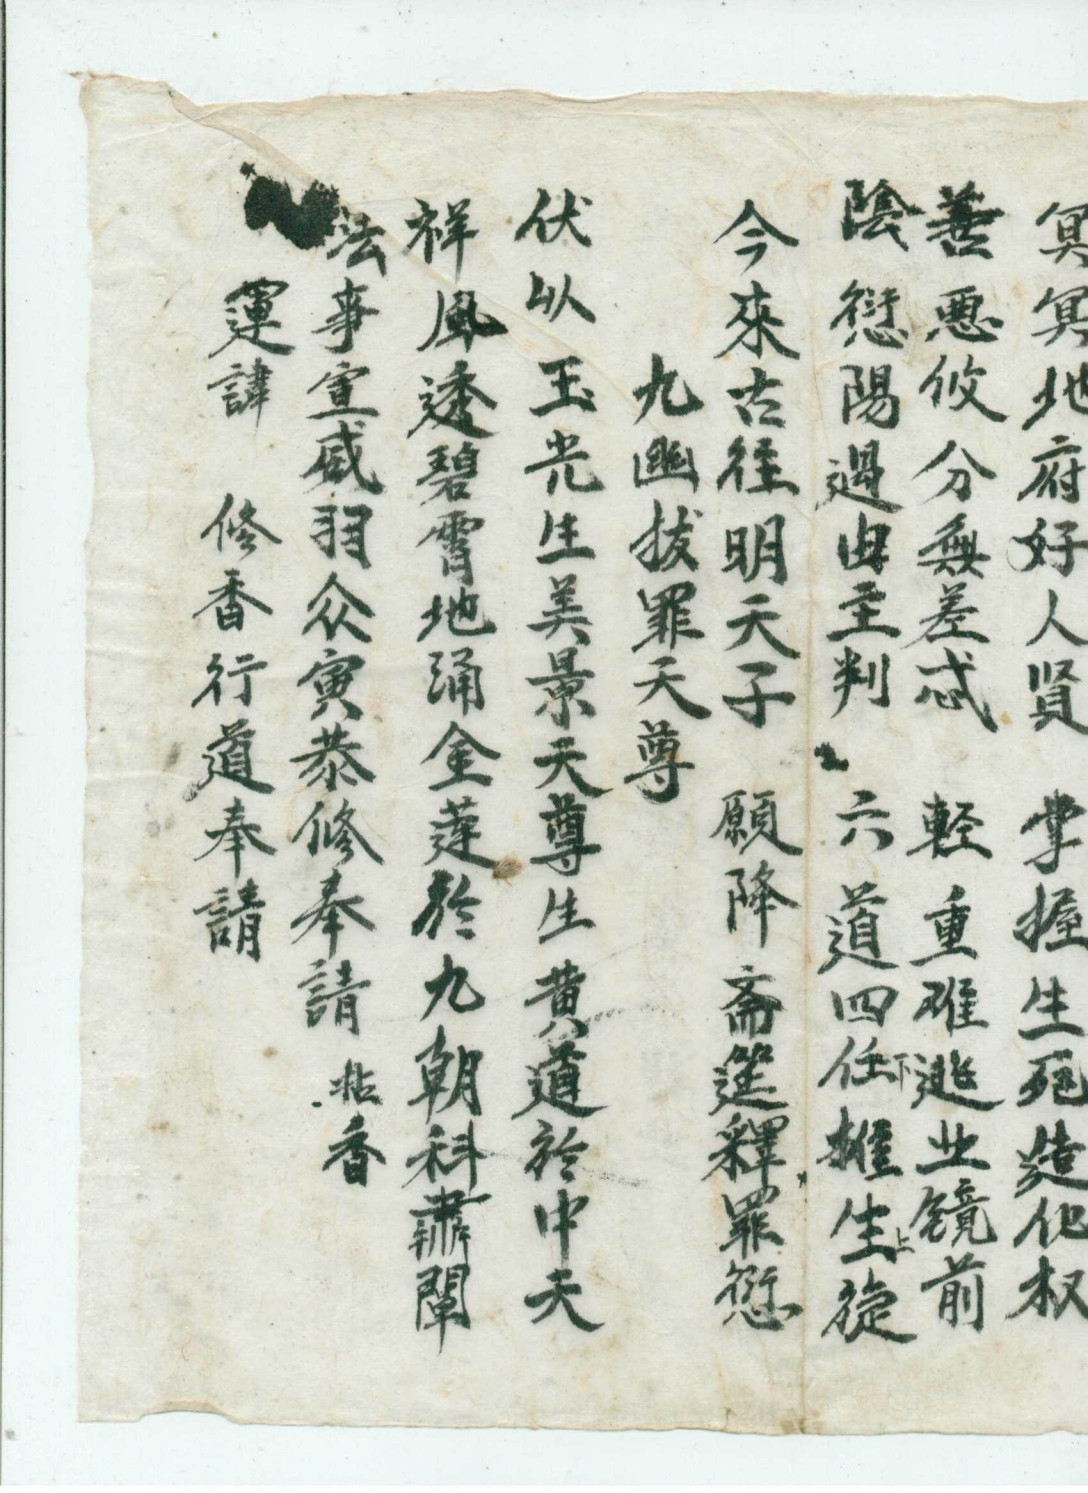 冥冥地府好人賢　掌握生死造化权
善悪攸分無差忒　軽重难逃业镜前
陰愆陽過由主判　六道四任下推生上
今來古往明天子　願降斋筵釋罪愆
九幽拔罪天尊
伏以　玉光生美景天尊生黄道於中天
祥風透碧霄地涌金莲於九朝科肅闡
法事宣威羽众寅恭修奉請　拈香
運諱　修香行道奉請